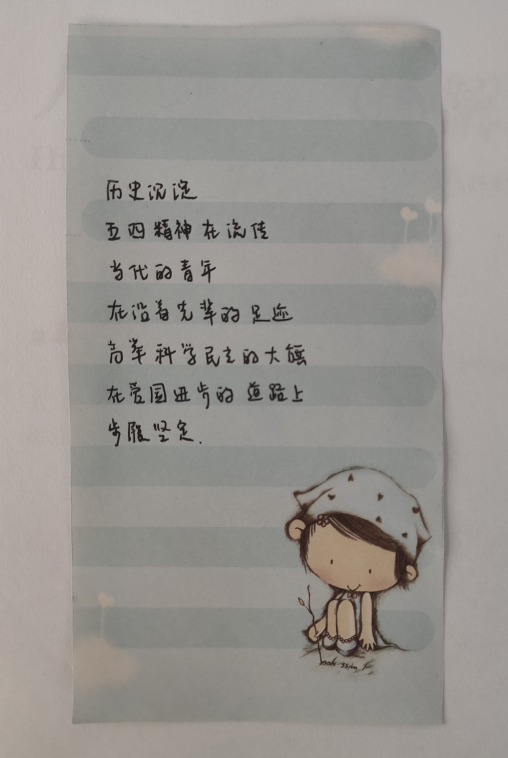 历史沉淀
五四精神在流传
当代的青年
在沿着先辈的足迹
高举科学民主的大旗
在爱国进步的道路上
步履坚定.